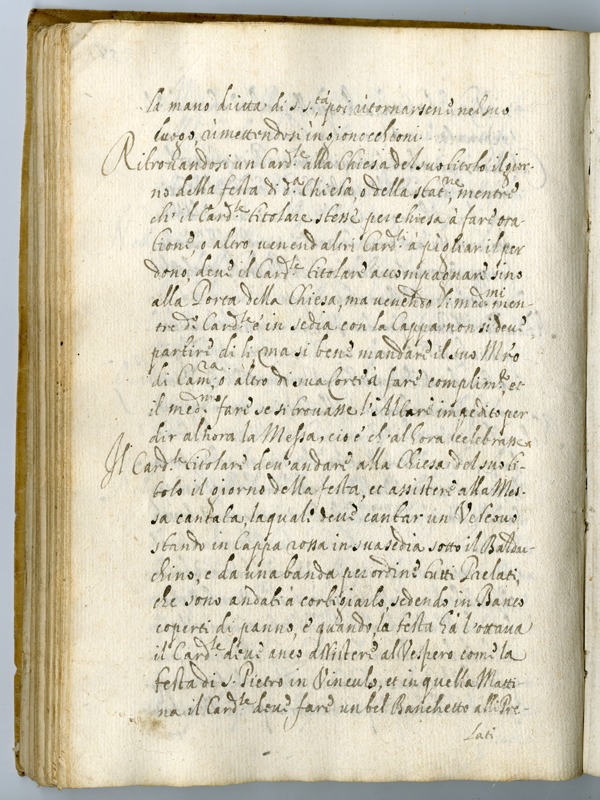 la mano diritta di S. S.tà, poi ritornarsene nel suo
luogo, rimettendosi in gionocchioni.
Ritrovandosi un Card.le alla Chiesa del suo titolo il gior-
no della festa di d.a Chiesa, o della stat.ne, mentre
ch' il Card.le titolare stesse per chiesa à fare ora-
tione, o altro, venend' altri Card.li à pigliar il per
dono, deve il Card.le titolare accompagnare sino
alla Porta della Chiesa, ma venendo li med.mi men-
tre d.o Card.le è in sedia con la Cappa non si deve
partire di lì, ma si bene mandare il suo M'ro
di Cam.ra, o altro di sua Corte à fare complim.to, et
il med.mo fare se si trovasse l'Altare impedito per
dir alhora la Messa, cioè ch' alhora celebrasse
Il Card.le titolare dev' andare alla Chiesa del suo ti-
tolo il giorno della festa, et assistere alla Mes-
sa cantata, laquale deve cantar un Vescovo
stando in Cappa rossa in sua sedia sotto il Balda-
chino, e da una banda per ordine tutti Prelati,
che sono andati à cortigiarlo, sedendo in Banco
coperti di panno, e quando la festa hà l'ottava
il Card.le deve anco assistere al Vespero come la
festa di S. Pietro in Vinculo, et in quella Matti-
na il Card.le deve fare un bel Banchetto alli Pre-
lati